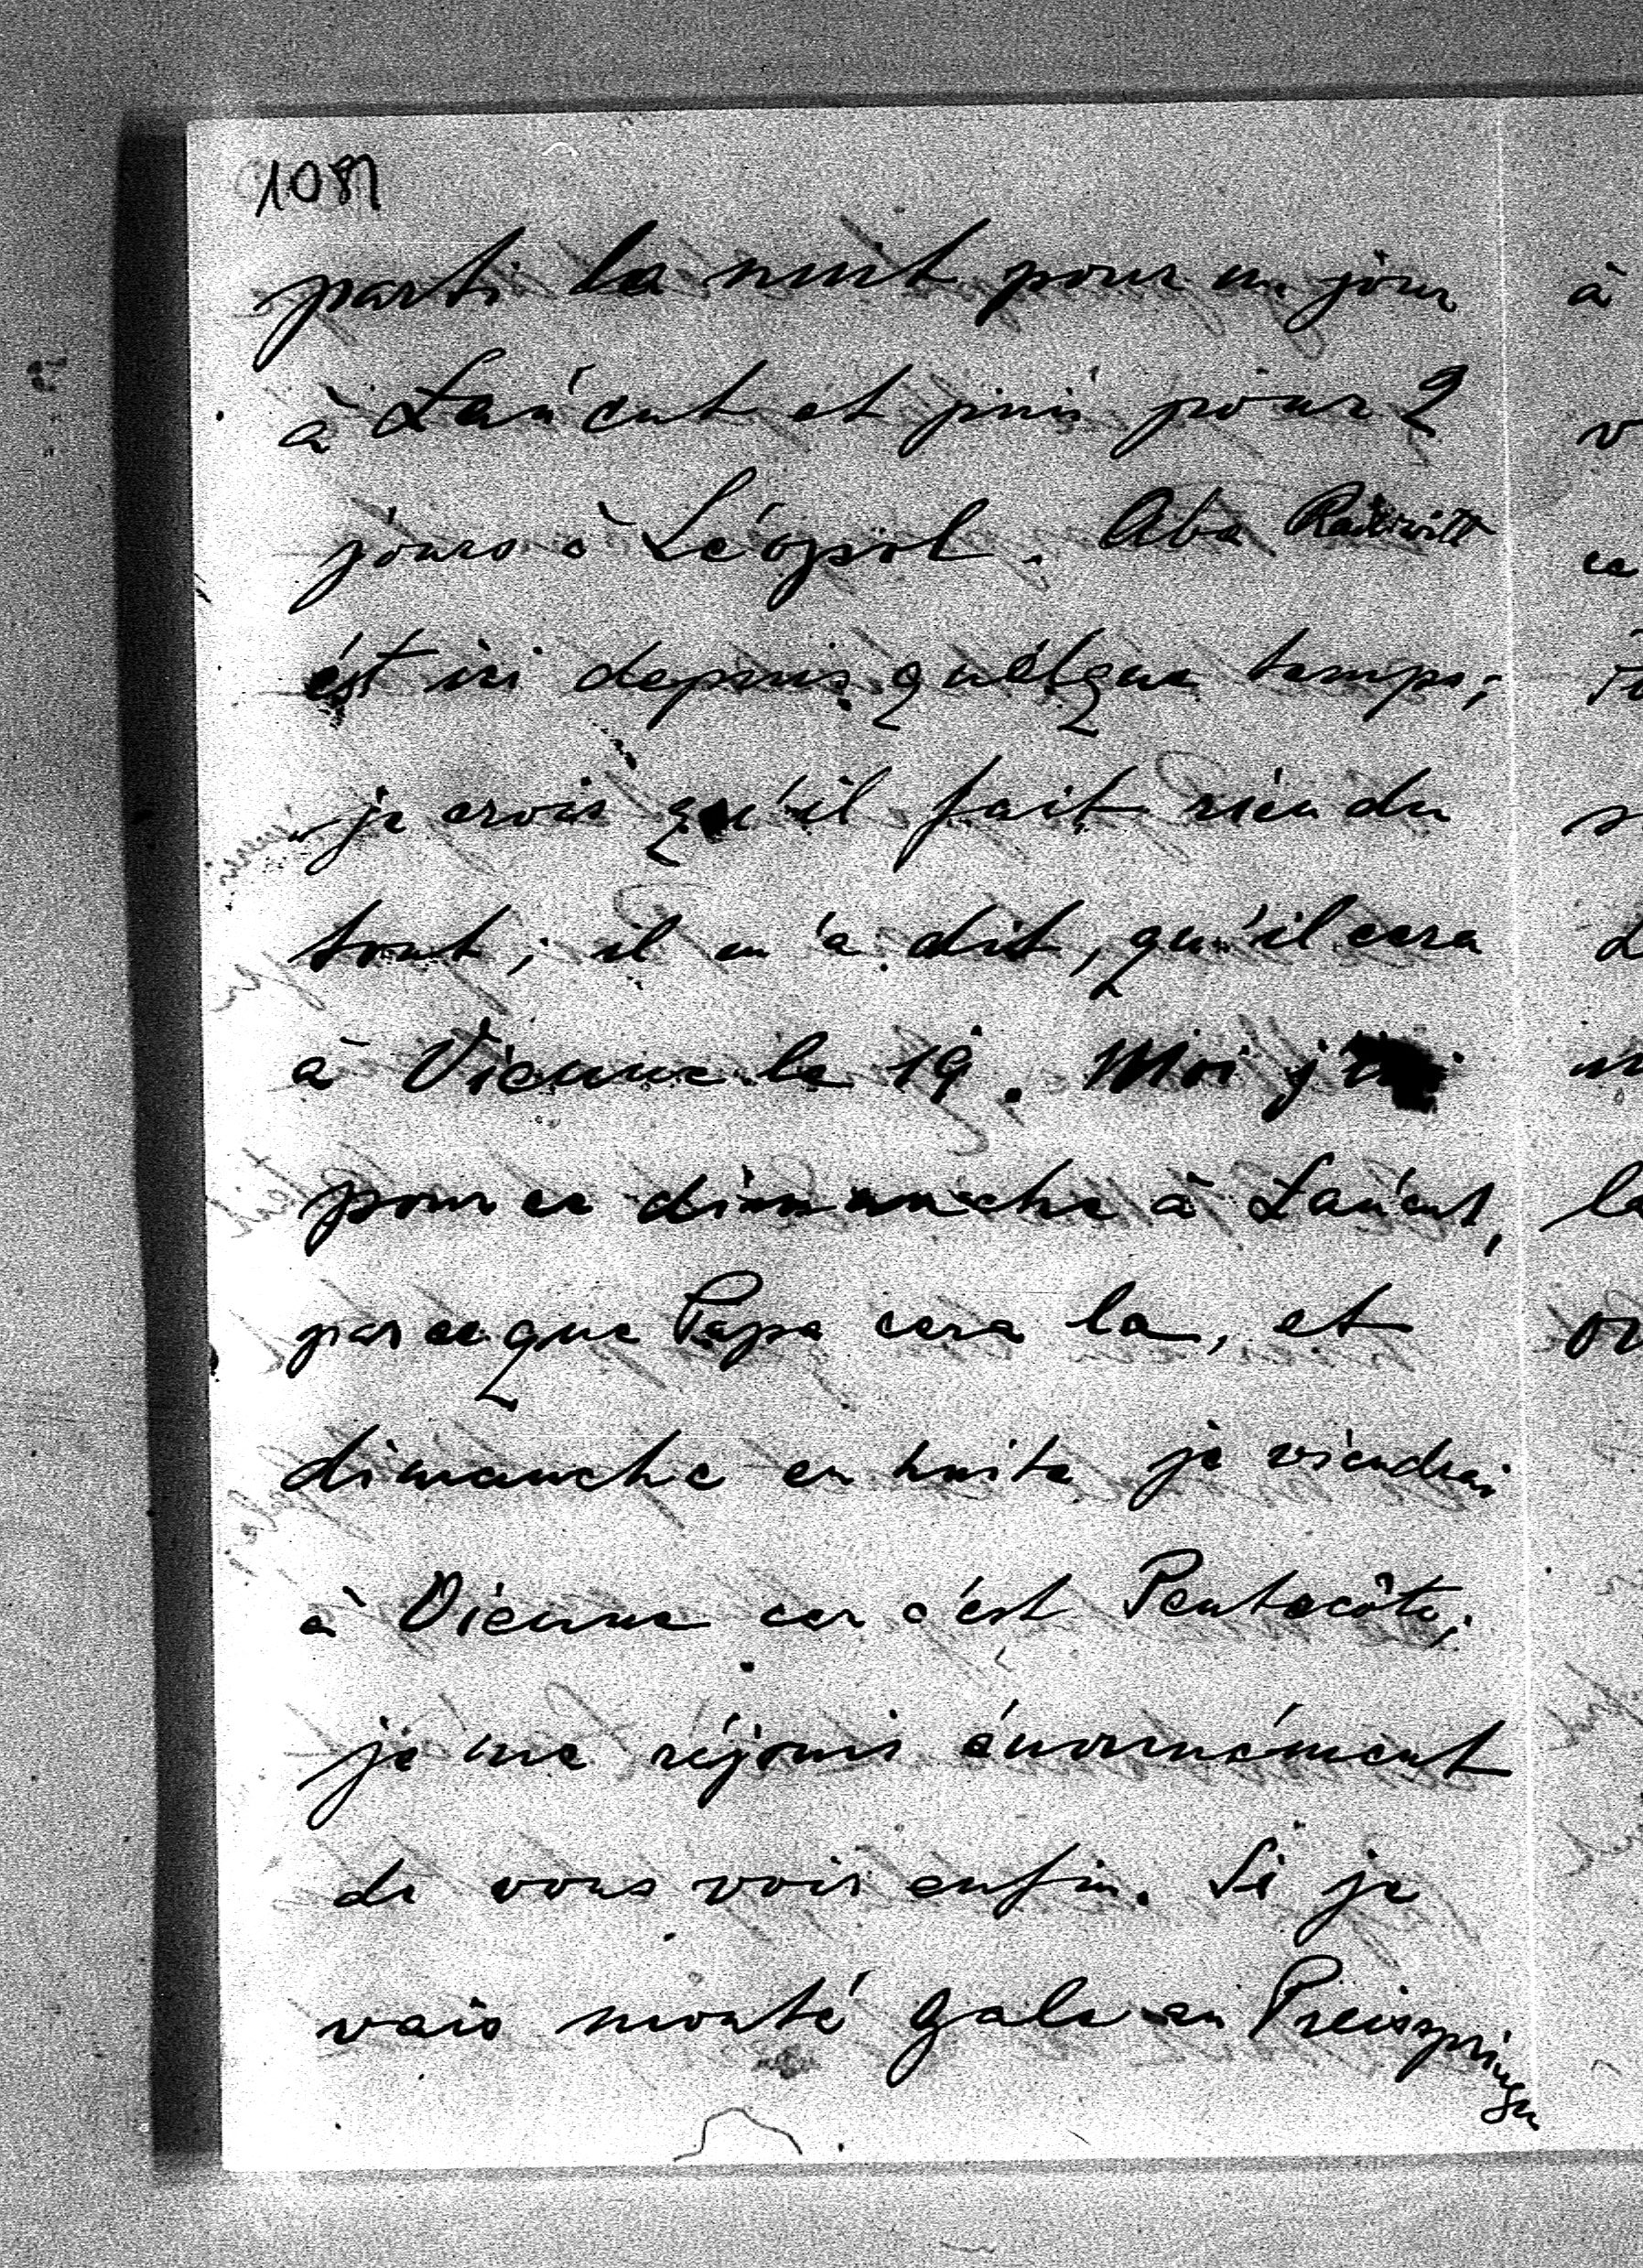 parti la nuit pour un jour
à Łańcut et puis pour 2
jours à Léopol. Aba Radziwiłł
est ici depuis quelque temps;
je crois qu'il fait rien du
tout; il m'a dit, qu'il cera
à Vienne le 19. Moi
pour ce dimanche à Łańcut,
parceque Papa cera la, et
dimanche en huite je viendrai
à Vienne car c'est Pentecôte;
je me réjouis énormément
de vous voir enfin. Si je
vais monté en Preisspringen